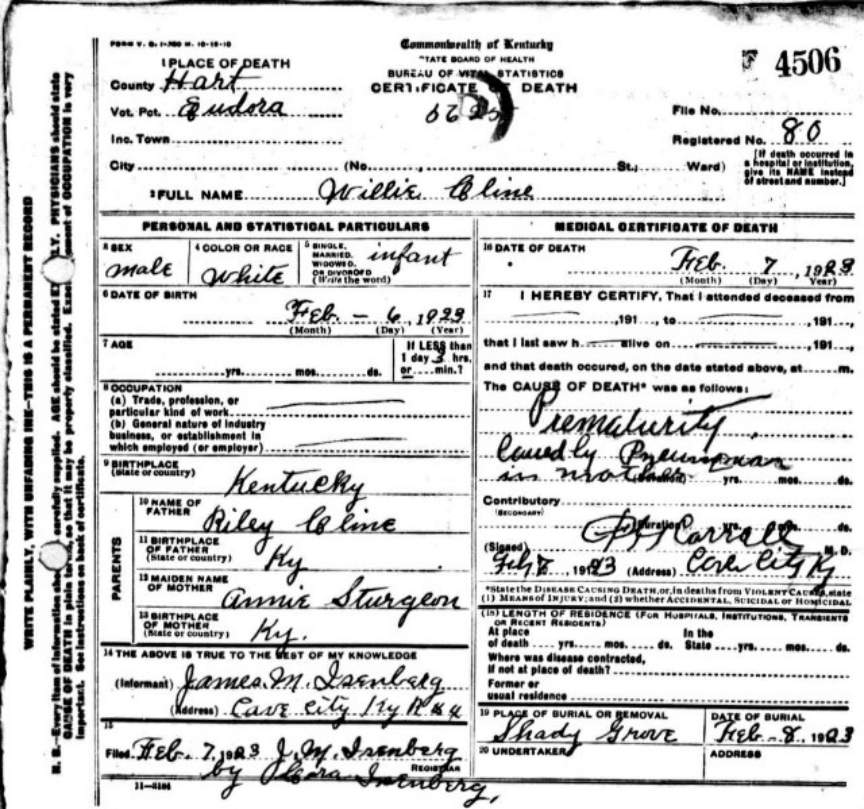 FORM V. S. 1-
Commonwealth of Kentucky
STATE BOARD OF HEALTH
BUREAU OF VITAL STATISTICS
CERTIFICATE OF DEATH
4506
1 PLACE OF DEATH
County Hart
Vot. Pct. Eudora
Inc. Town
City (No. , St.; Ward)
File No.
Registered No. 80
[If death occurred in
a hospital or institution,
give its NAME instead
of street and number.]
2 FULL NAME Willie Cline
PERSONAL AND STATISTICAL PARTICULARS
3 SEX
male
4 COLOR OR RACE
White
5 SINGLE,
MARRIED,
WIDOWED,
OR DIVORCED
(Write the word)
infant
6 DATE OF BIRTH
Feb. - 6, 1923
(Month) (Day) (Year)
7 AGE
yrs. mos. ds.
If LESS than
1 day 3 hrs.
or min.?
8 OCCUPATION
(a) Trade, profession, or
particular kind of work
(b) General nature of industry
business, or establishment in
which employed (or employer)
9 BIRTHPLACE
(State or country)
Kentucky
PARENTS
10 NAME OF
FATHER
Riley Cline
11 BIRTHPLACE
OF FATHER
(State or country)
Ky
12 MAIDEN NAME
OF MOTHER
Annie Sturgeon
13 BIRTHPLACE
OF MOTHER
(State or country)
Ky.
14 THE ABOVE IS TRUE TO THE BEST OF MY KNOWLEDGE
(Informant) James M. Isenberg
(Address) Cave City Ky R #4
15
Filed Feb. 7, 1923 J. M. Isenberg
REGISTRAR
by Isenberg,
11-
MEDICAL CERTIFICATE OF DEATH
16 DATE OF DEATH
Feb. 7, 1923
(Month) (Day) Year)
17 I HEREBY CERTIFY, That I attended deceased from
,191 , to ,191 ,
that I last saw h alive on ,191 ,
and that death occured, on the date stated above, at m.
The CAUSE OF DEATH* was as follows:
Prematurity,
Caused by
in mother
(Duration) yrs. mos. ds.
Contributory
(SECONDARY)
(Duration) yrs. mos. ds.
(Signed) Carroll M. D.
Feb 7, 1923 (Address) Cave City Ky
*State the DISEASE CAUSING DEATH, or, in deaths from VIOLENT CAUSES, state
(1) MEANS OF INJURY; and (2) whether ACCIDENTAL, SUICIDAL OR HOMICIDAL
(18) LENGTH OF RESIDENCE (FOR HOSPITALS, INSTITUTIONS, TRANSIENTS
OR RECENT RESIDENTS)
At place In the
of death yrs. mos. ds. State yrs. mos. ds.
Where was disease contracted,
if not at place of death?
Former or
usual residence
19 PLACE OF BURIAL OR REMOVAL
Shady Grove
DATE OF BURIAL
Feb - 8, 1923
20 UNDERTAKER
ADDRESS
WRITE PLAINLY, WITH UNFADING INK—THIS IS A PERMANENT RECORD
N. B.—Every item of information carefully supplied. AGE should be stated PHYSICIANS should state
CAUSE OF DEATH in plain so that it may be properly classified. of OCCUPATION is very
important. See instructions on back of certificate.